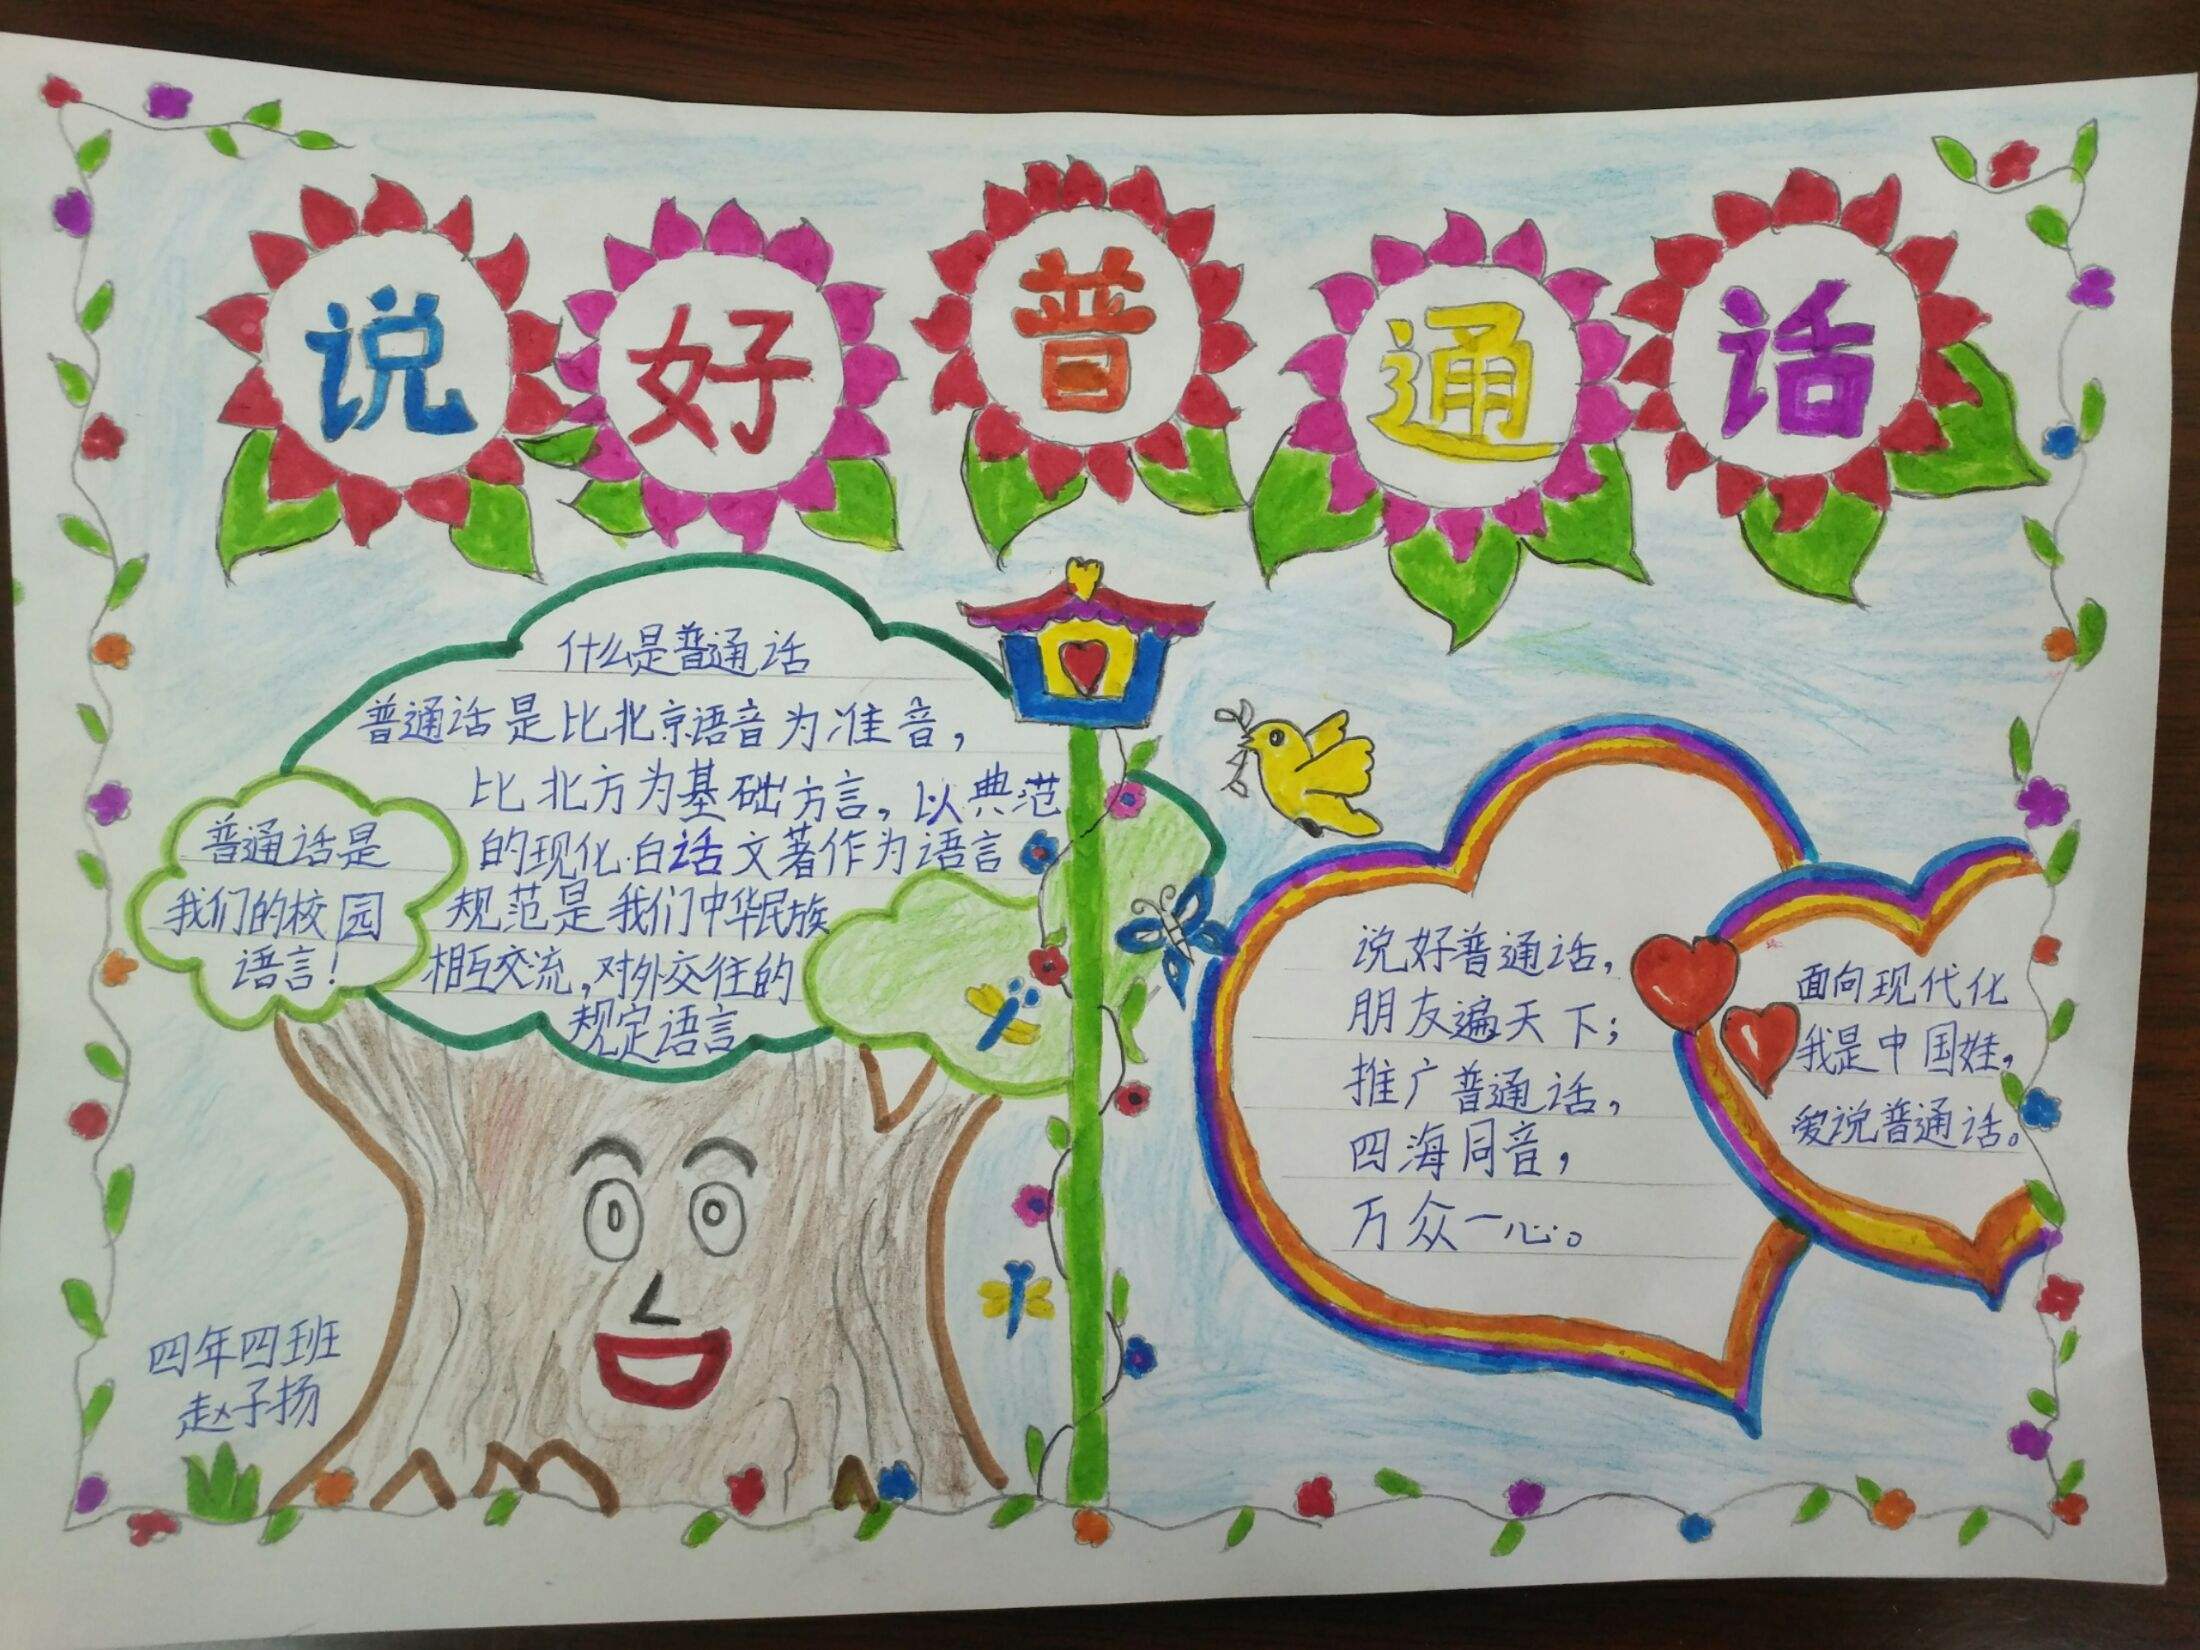 说好普通话
什么是普通话
普通话是比北京语音为准音，
比北方为基础方言，以典范
的现化白话文著作为语言
规范是我们中华民族
相互交流，对外交往的
规定语言
普通话是
我们的校园
语言！
说好普通话，
朋友遍天下；
推广普通话，
四海同音，
万众一心。
面向现代化
我是中国娃，
爱说普通话。
四年四班
赵子扬